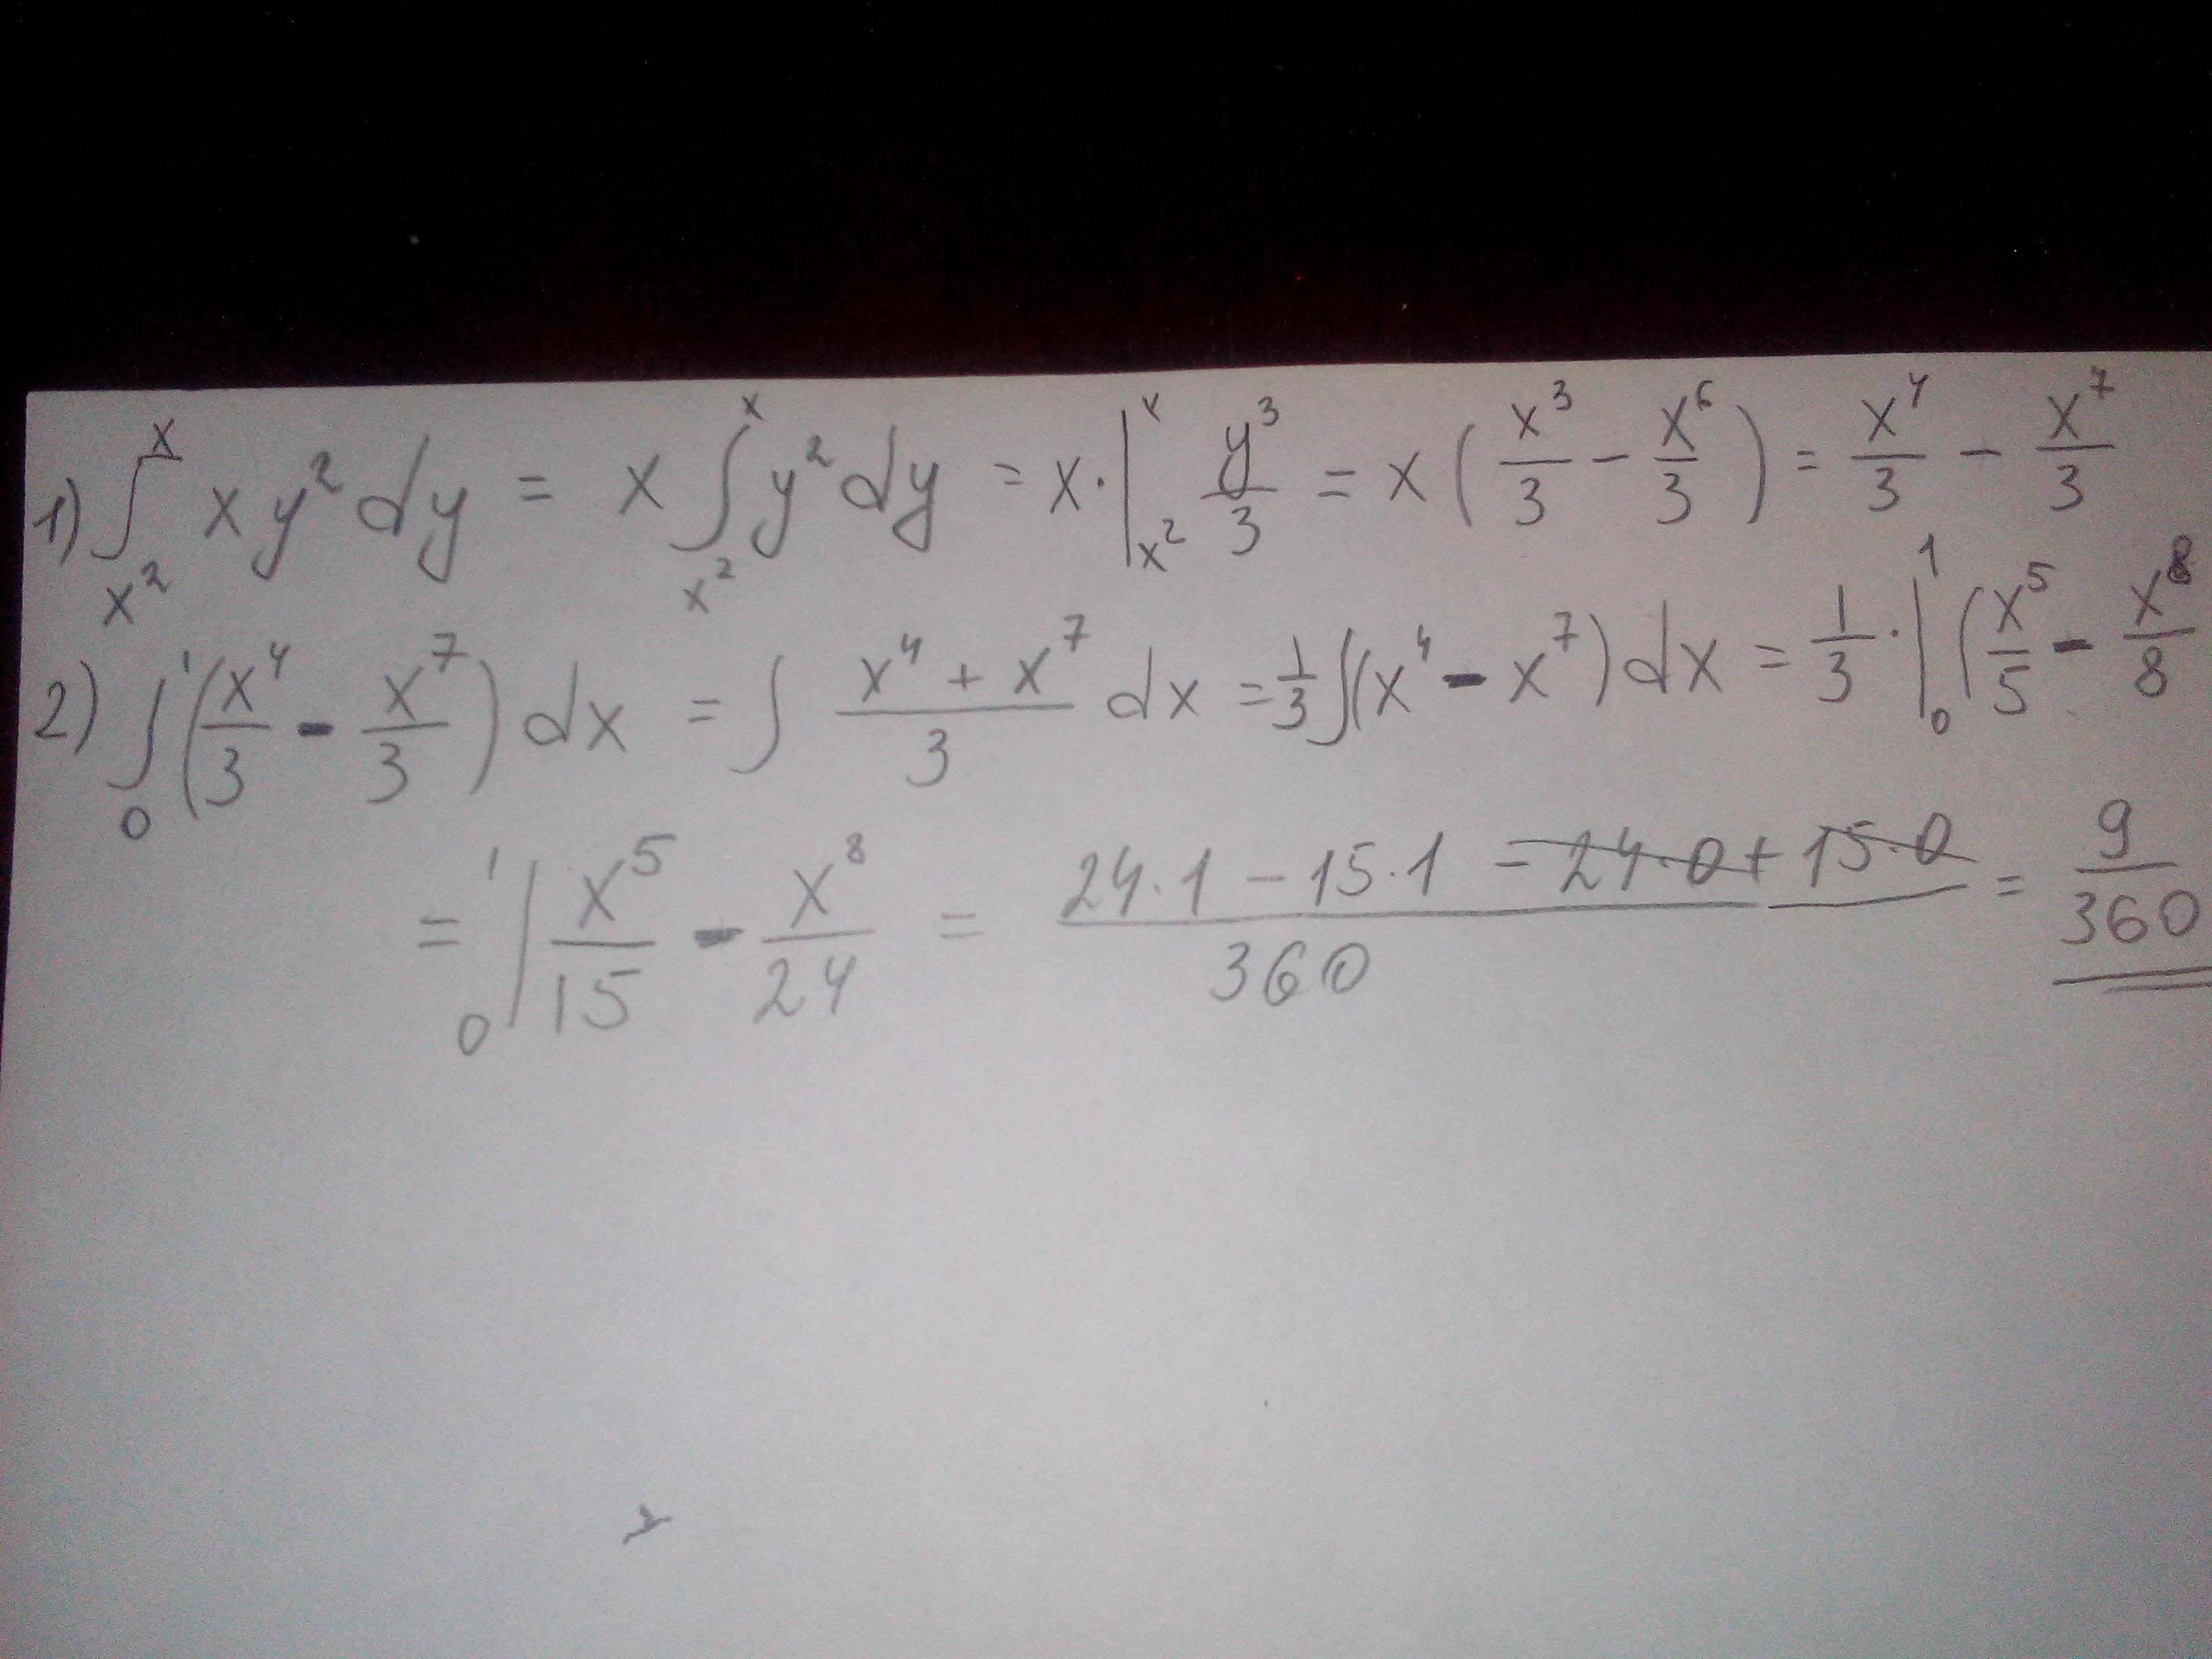 1) ∫_{x²}^{x} x y² dy = x ∫_{x²}^{x} y² dy = x · |_{x²}^{x} y³/3 = x ( x³/3 − x⁶/3 ) = x⁴/3 − x⁷/3
2) ∫_{0}^{1} ( x⁴/3 − x⁷/3 ) dx = ∫ (x⁴ + x⁷)/3 dx = 1/3 ∫(x⁴ − x⁷) dx = 1/3 · |_{0}^{1} ( x⁵/5 − x⁸/8
= |_{0}^{1} x⁵/15 − x⁸/24 = (24·1 − 15·1 − 24·0 + 15·0)/360 = 9/360